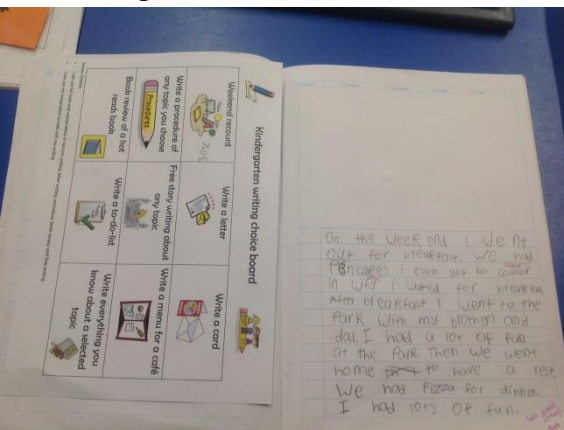 Kindergarten writing choice board
Weekend recount
Write a letter
Write a card
Write a procedure of
any topic you choose
Procedures
Free story writing about
any topic
Write a menu for a café
Book review of a hot
reads book
Write a to-do-list
Write everything you
know about a selected
topic
On the weekend i went
out for breakfast. We had
Pancakes i even got to
in i waited for breakfast
After breakfast I went to the
Park with my brothers and
dad. I had a lot of fun
at the Park Then We went
home to have a rest
We had Pizza for dinner.
I had lots Of fun.